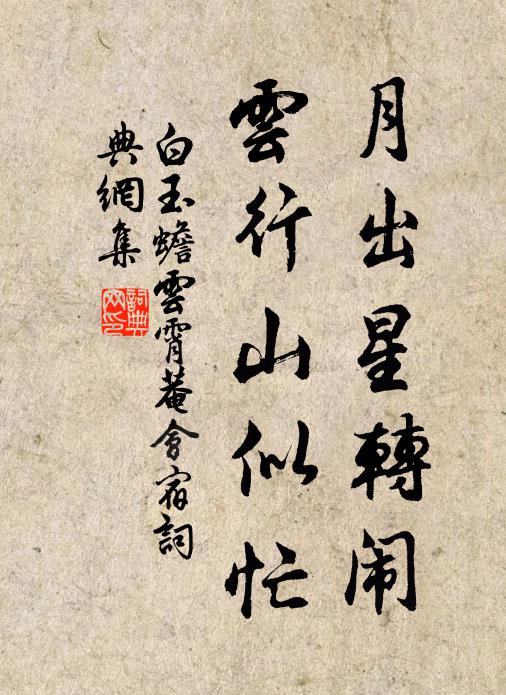 月出星轉闹
雲行山似忙
白玉蟾雲霄菴會宿詞
典網集
詞典网印